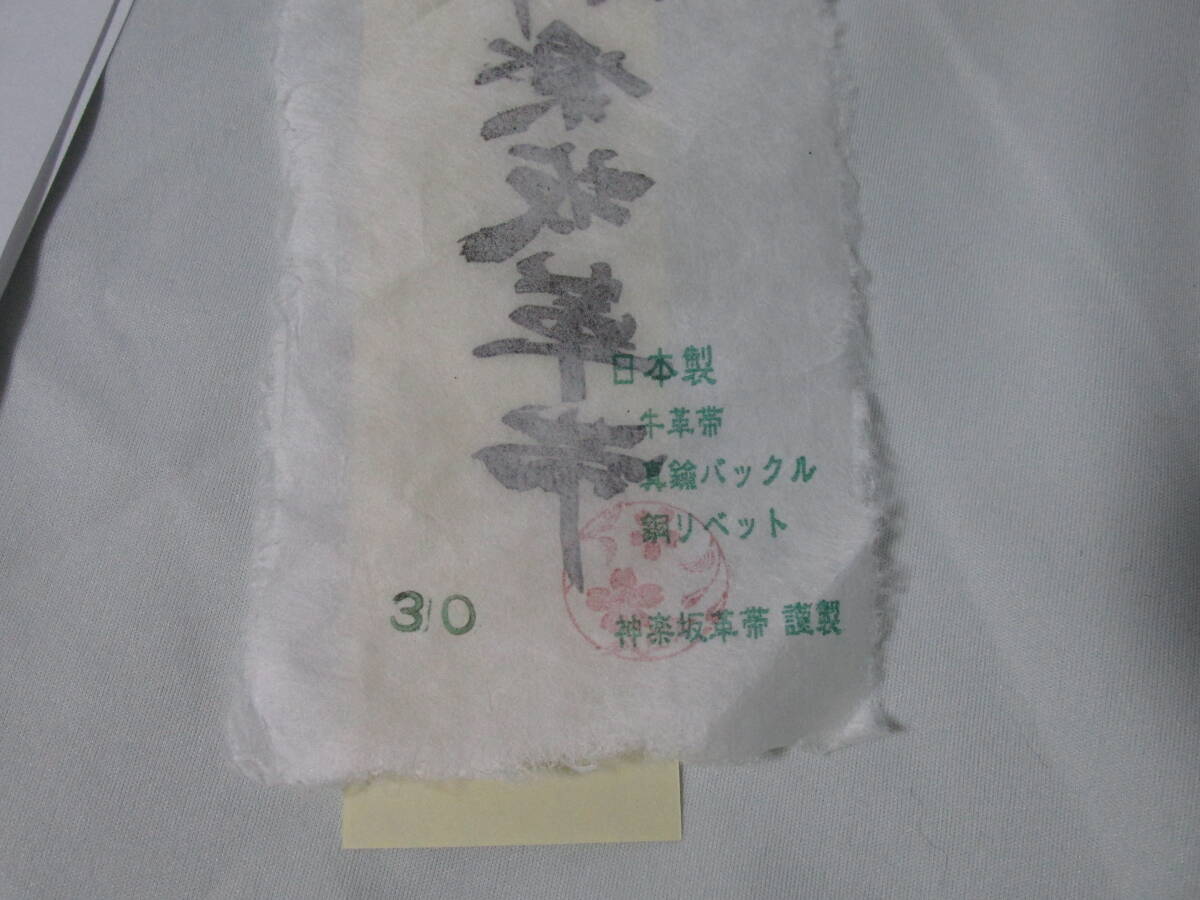 楽坂革帯
日本製
牛革帯
真鍮バックル
銅リベット
30
神楽坂革帯 謹製